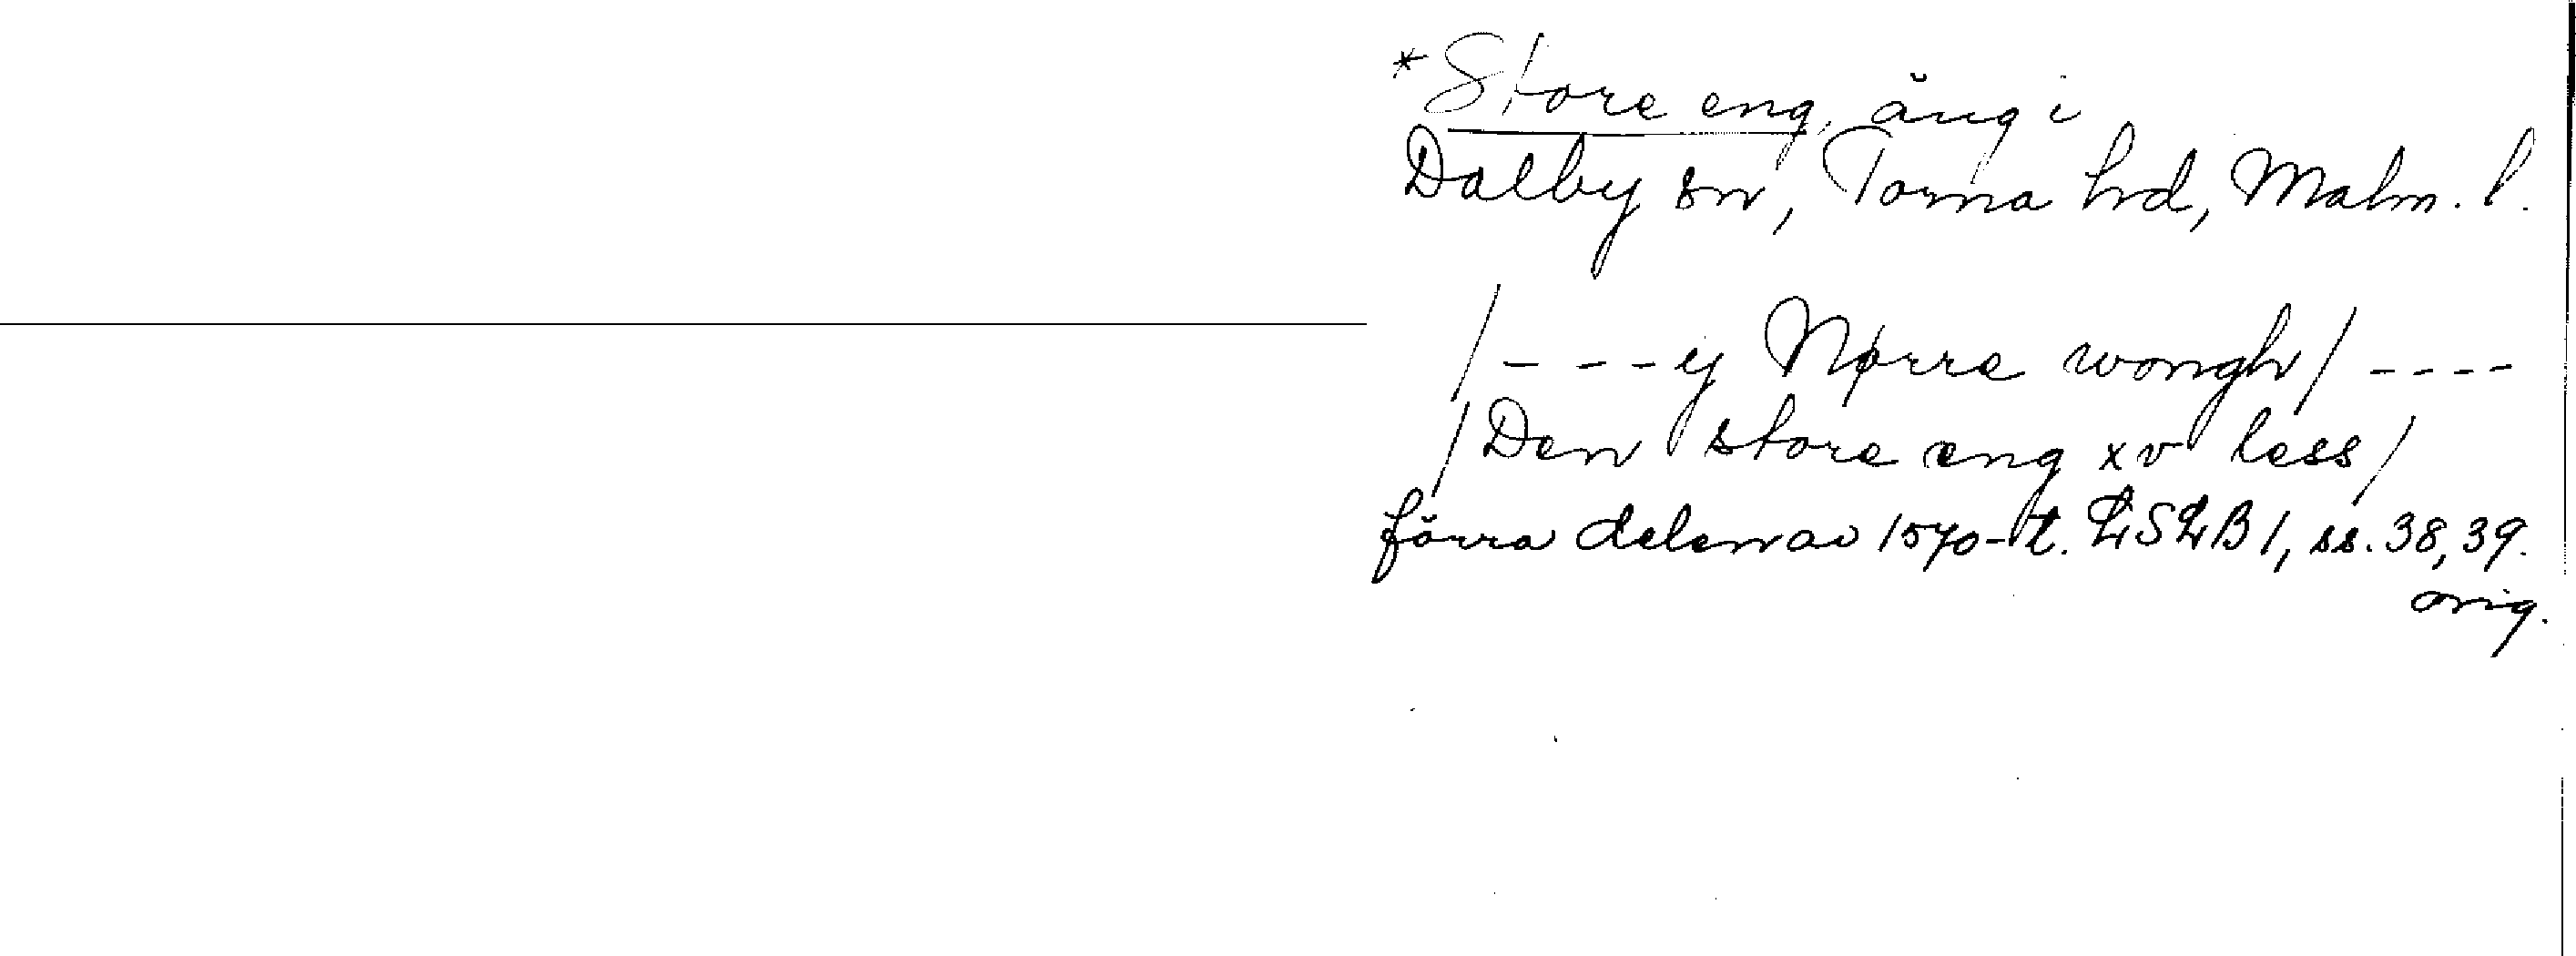 *Store eng, äng i
Dalby sn, Torna hd, Malm. l.
/- - - y Nørre wongh/ - - - -
/Den store eng xv less/
förra delen av 1570-t. LSLB 1, ss. 38, 39.
orig.